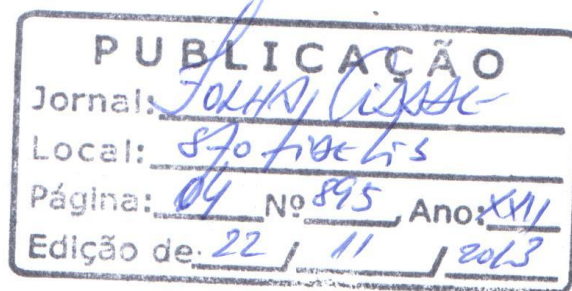 PUBLICAÇÃO
Jornal: FOLHA CIDADE
Local: São Fidelis
Página: 04 Nº 895, Ano: XXII
Edição de 22 / 11 / 2013